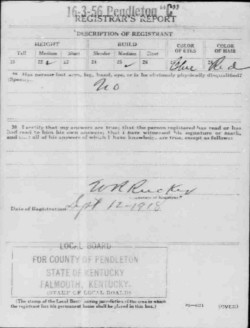 16-3-56 Pendleton "C"
REGISTRAR'S REPORT
DESCRIPTION OF REGISTRANT
HEIGHT BUILD COLOR OF EYES COLOR OF HAIR
Tall Medium Short Slender Medium Stout
21 22 23 24 25 26 27 28
Blue Red
29 Has person lost arm, leg, hand, eye, or is he obviously physically disqualified?
(Specify.)
No
30 I certify that my answers are true; that the person registered has read or has
had read to him his own answers; that I have witnessed his signature or mark,
and that all of his answers of which I have knowledge are true, except as follows:
W R Rucker
Date of Registration Sept 12-1918
LOCAL BOARD
FOR COUNTY OF PENDLETON
STATE OF KENTUCKY
FALMOUTH, KENTUCKY.
(STAMP OF LOCAL BOARD)
(The stamp of the Local Board having jurisdiction of the area in which
the registrant has his permanent home shall be placed in this box.)
(OVER)